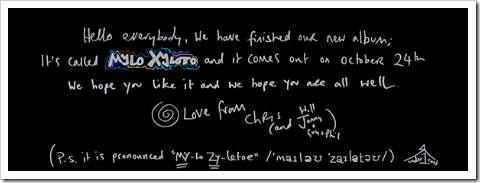 Hello everybody, We have finished our new album;
It's called MYLO XYLOTO and it comes out on october 24th
We hope you like it and we hope you are all well.
Love from Chris (and Will Jonny + Guy + Phil)
(P.s. it is pronounced "MY-lo Zy-letoe" /'maɪləʊ 'zaɪlətəʊ/)